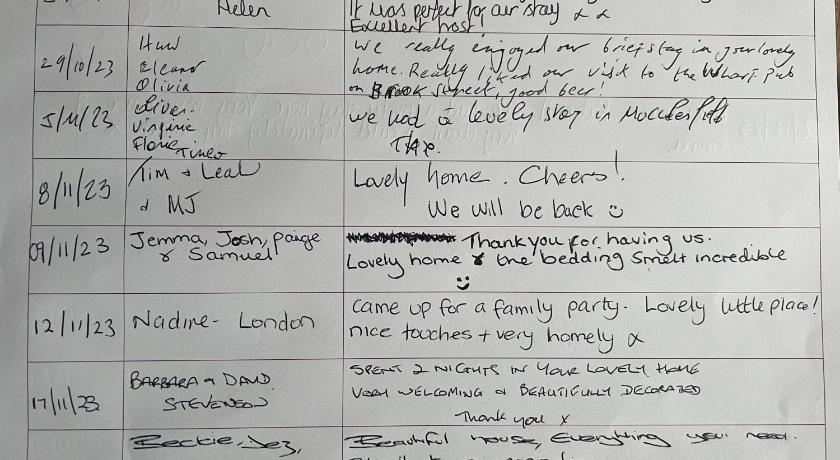 Helen
It was perfect for our stay x x
Excellent host
29/10/23
Huw
Eleanor
Olivia
We really enjoyed our brief stay in your lovely
home. Really liked our visit to the Wharf Pub
on Brook Street, good beer!
5/11/23
Oliver
Virginie
Florie Timeo
We had a lovely stay in Macclesfield
8/11/23
Tim + Leah
+ MJ
Lovely home. Cheers!
We will be back
09/11/23
Jemma, Josh, paige
& Samuel
Thankyou for having us.
Lovely home & the bedding smelt incredible
12/11/23
Nadine - London
Came up for a family party - Lovely little place!
nice touches + very homely x
17/11/23
BARBARA & DAVID
STEVENSON
SPENT 2 NIGHTS IN YOUR LOVELY HOME
VERY WELCOMING & BEAUTIFULLY DECORATED
Thank you x
Beckie, Jez,
Beautiful house, Everything you need.